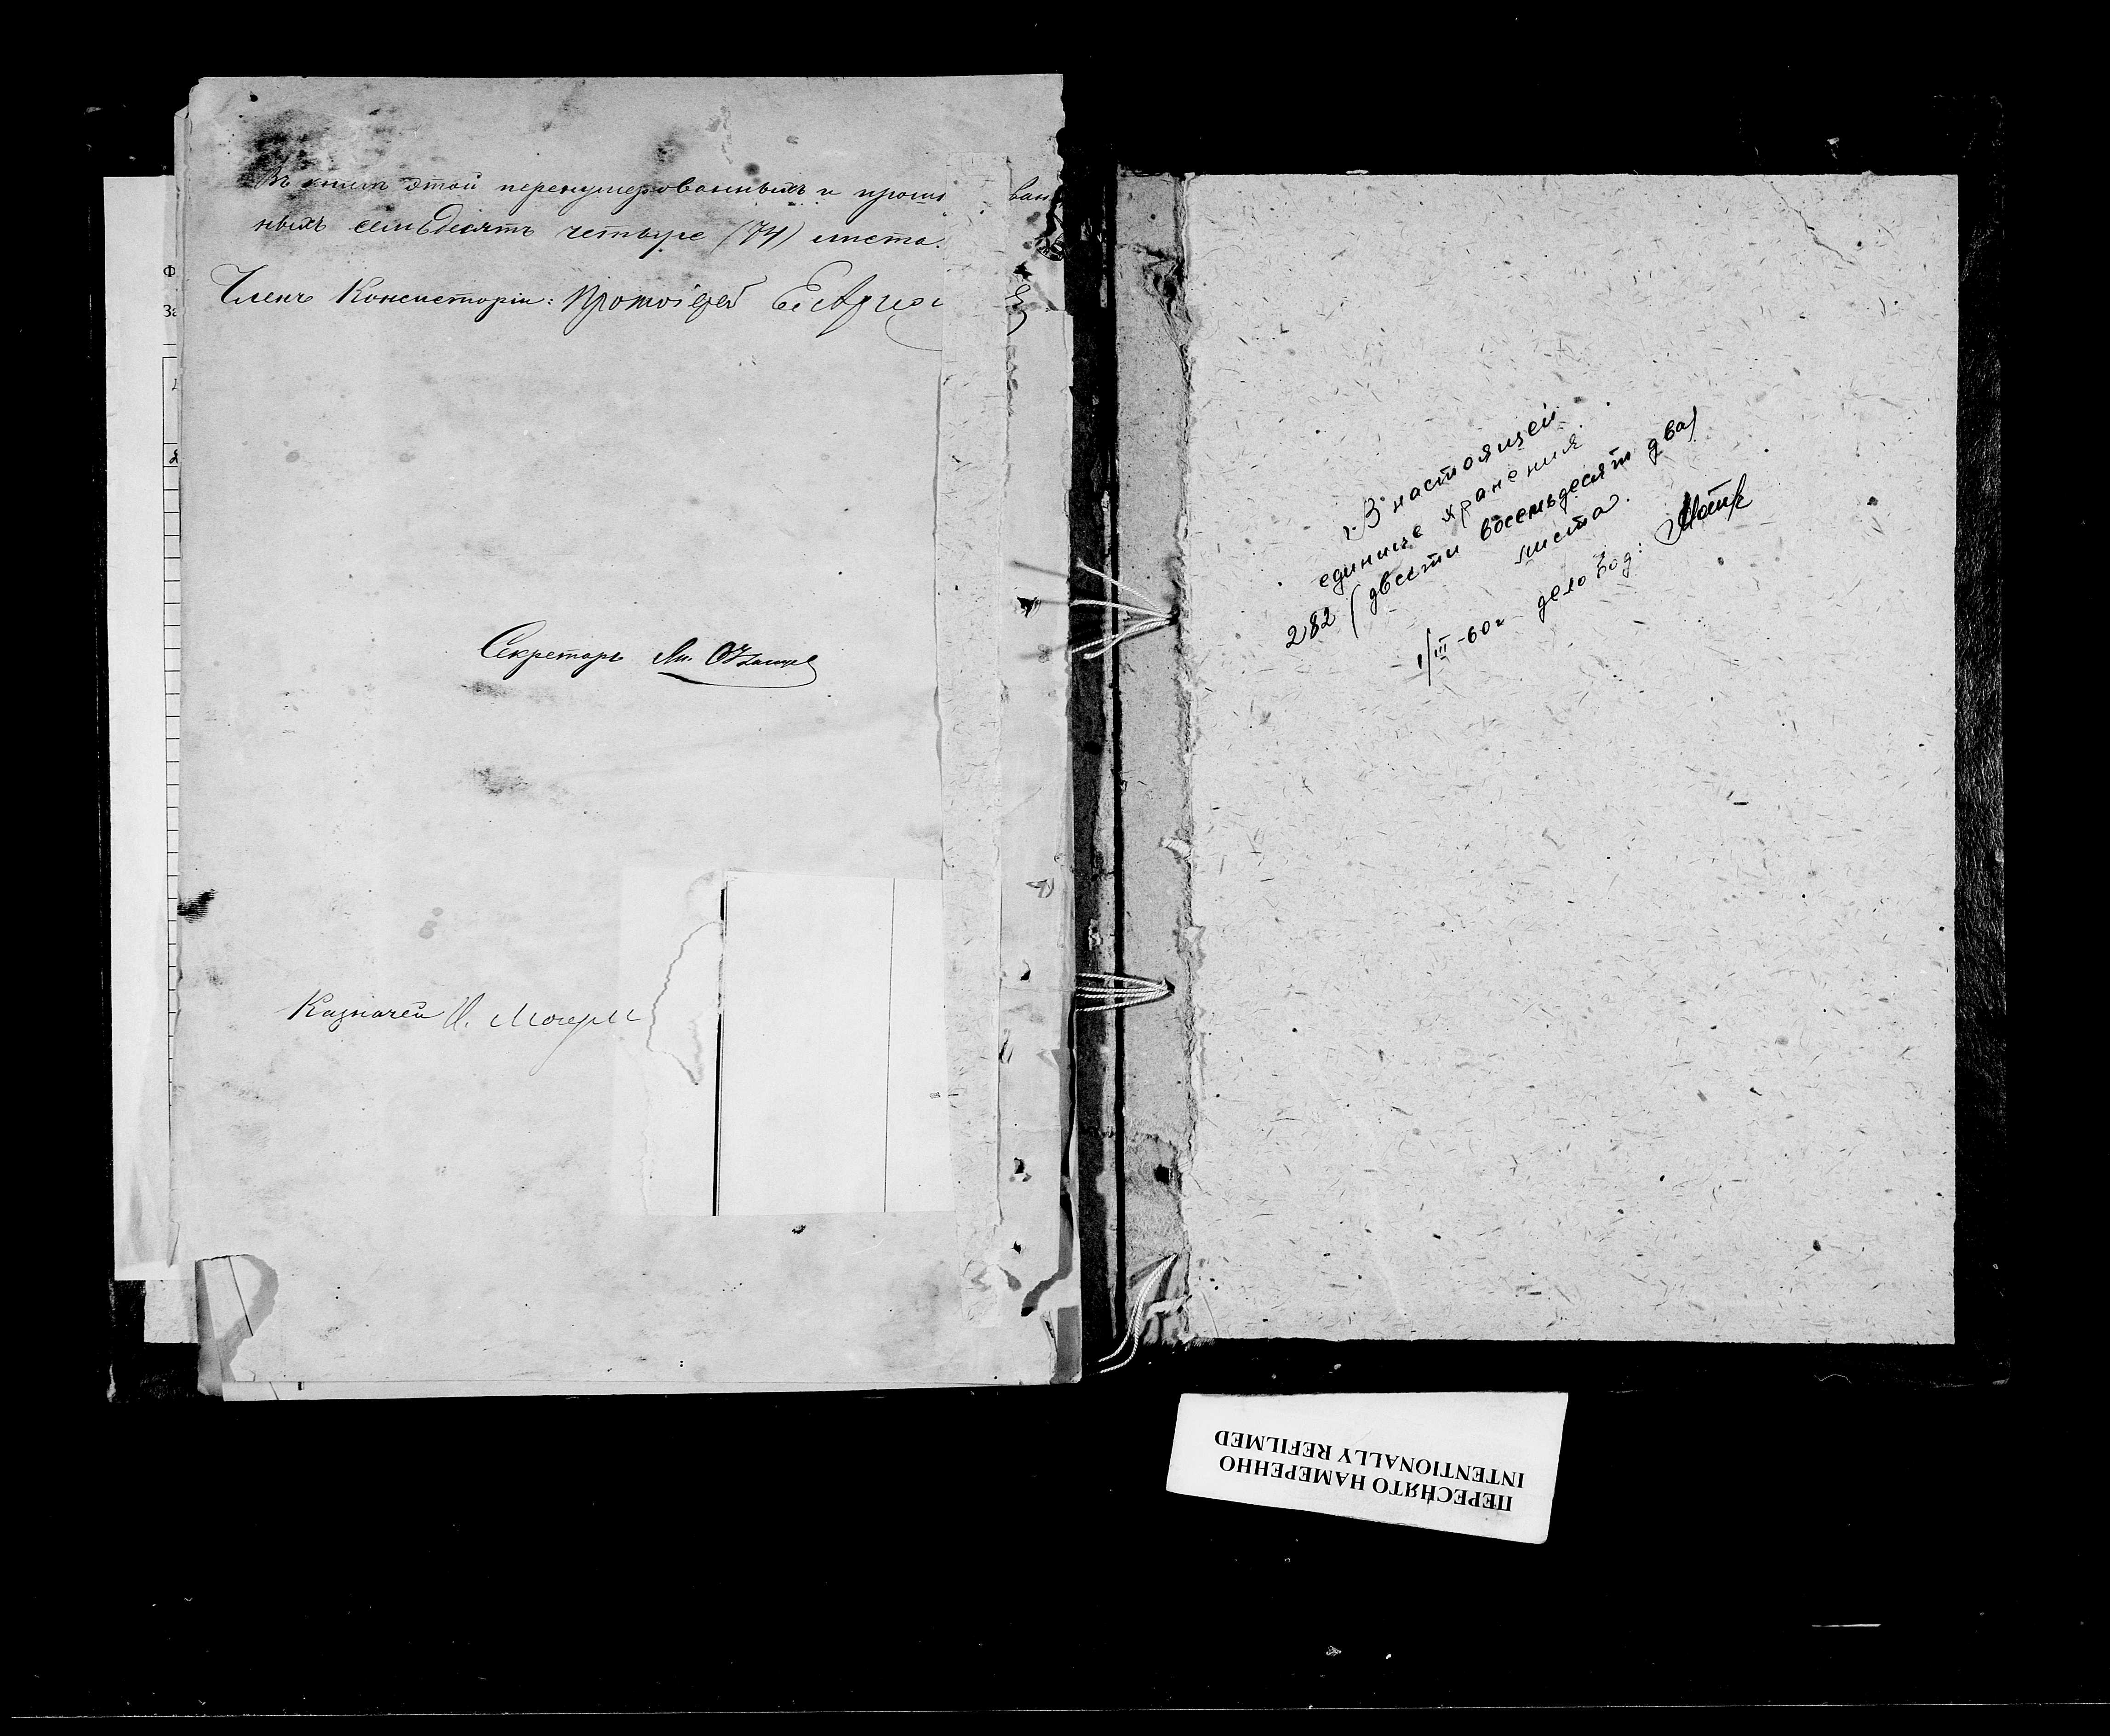 Въ книгѣ этой перенумерованныхъ и прошн ван
ныхъ семьдесятъ четыре (74) листа.
Членъ Консисторіи: Протоіерей
Секретарь
Казначей
В настоящей
единице хранения
282 (двести восемьдесят два)
листа.
1/III-60г дело
ПЕРЕСНЯТО НАМЕРЕННО
INTENTIONALLY REFILMED